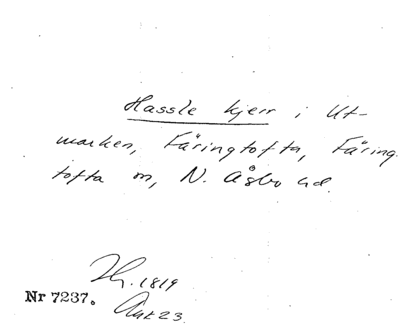 Hassle kjerr i Ut-
marken, Färingtofta, Färing
tofta sn, N. Åsbo hd.
Nr 7237.
1819
Akt 23